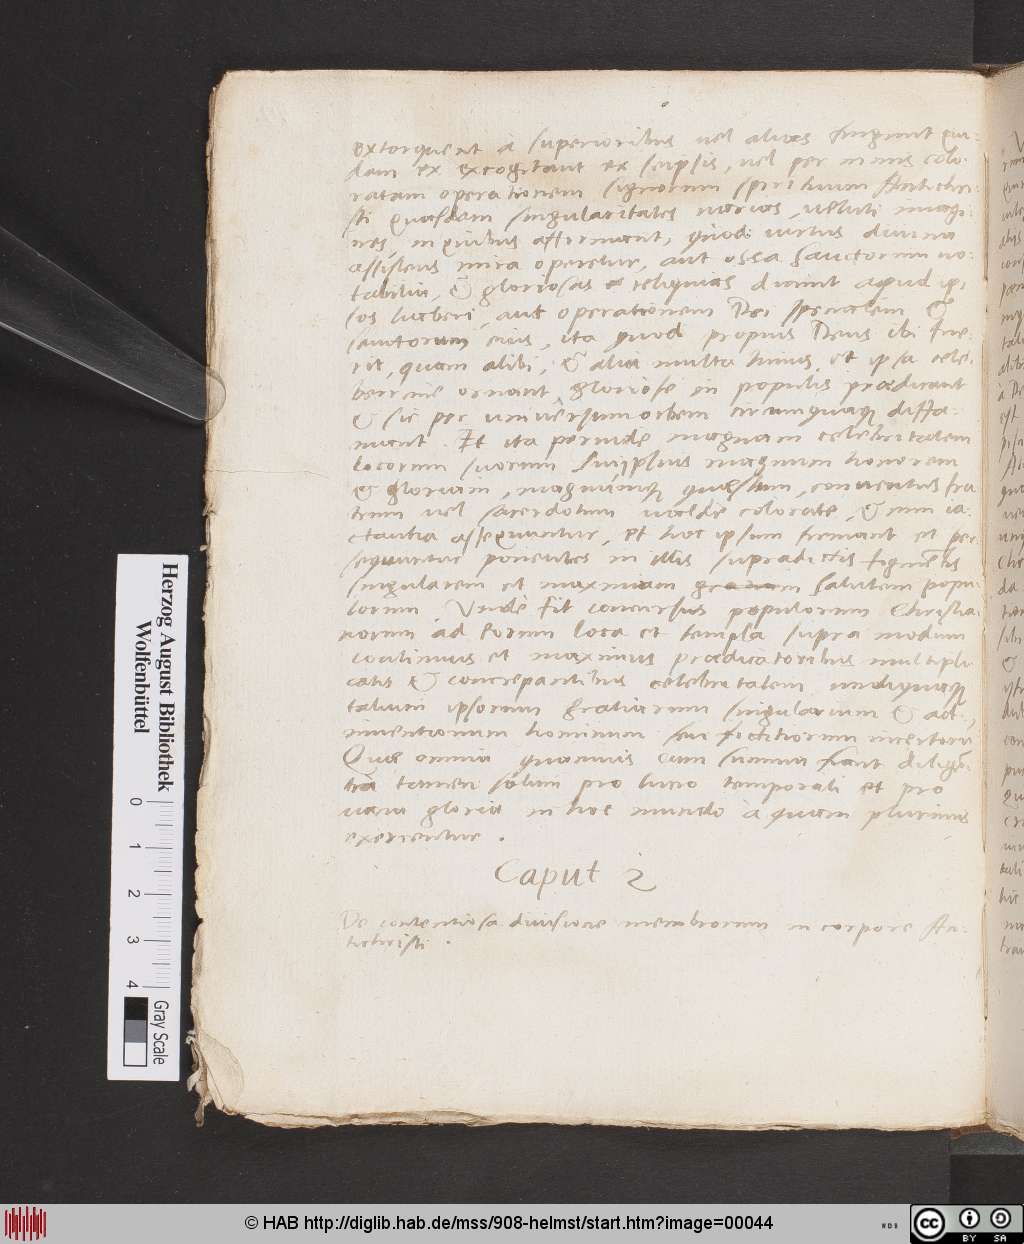 extorqueat à superioribus vel alias fingunt qui-
dam ex excogitant ex seipsis, vel per nimis colo-
ratam operationem signorum spirituum Antichri-
sti quasdam singularitates varias, veluti imagi-
nes, in quibus affirmant, quod virtus divina
assistens mira operetur, aut ossa Sanctorum no-
tabilia, & gloriosas reliquias dicunt apud ip-
sos haberi, aut operationem Dei specialem &
sanctorum eius, ita quod propius Deus ibi fue-
rit, quam alibi, & alia multa huius, et ipsa cele-
berrime ornant, gloriose in populis praedicant
& sic per universum orbem circumquaque diffa-
mant. Et ita perinde magnam celebritatem
locorum suorum suiipsius magnum honorem
& gloriam, magnumque quaestum, conventus fra
trum vel sacerdotum valde colorate, & cum ia-
ctantia assequuntur, et hoc ipsum firmant et per-
sequuntur ponentes in illis supradictis figmentis
singularem et maximam salutem popu-
lorum. Unde fit concursus populorum Christia-
norum ad eorum loca et templa supra modum
continuus et maximus praedicatoribus multipli
catis & concrepantibus celebritatem undiquaque
talium ipsorum gratiarum singularium & ad
inventionum hominum seu fictitiorum incertorū
Quae omnia quamvis cum summa fiant diligēn
tia tamen solum pro lucro temporali et pro
vana gloria in hoc mundo à quam plurimis
exercentur.
Caput 2
De contentiosa divisione membrorum in corpore An-
tichristi.
Herzog August Bibliothek
Wolfenbüttel
0 1 2 3 4
Gray Scale
© HAB http://diglib.hab.de/mss/908-helmst/start.htm?image=00044
WDB
cc BY SA